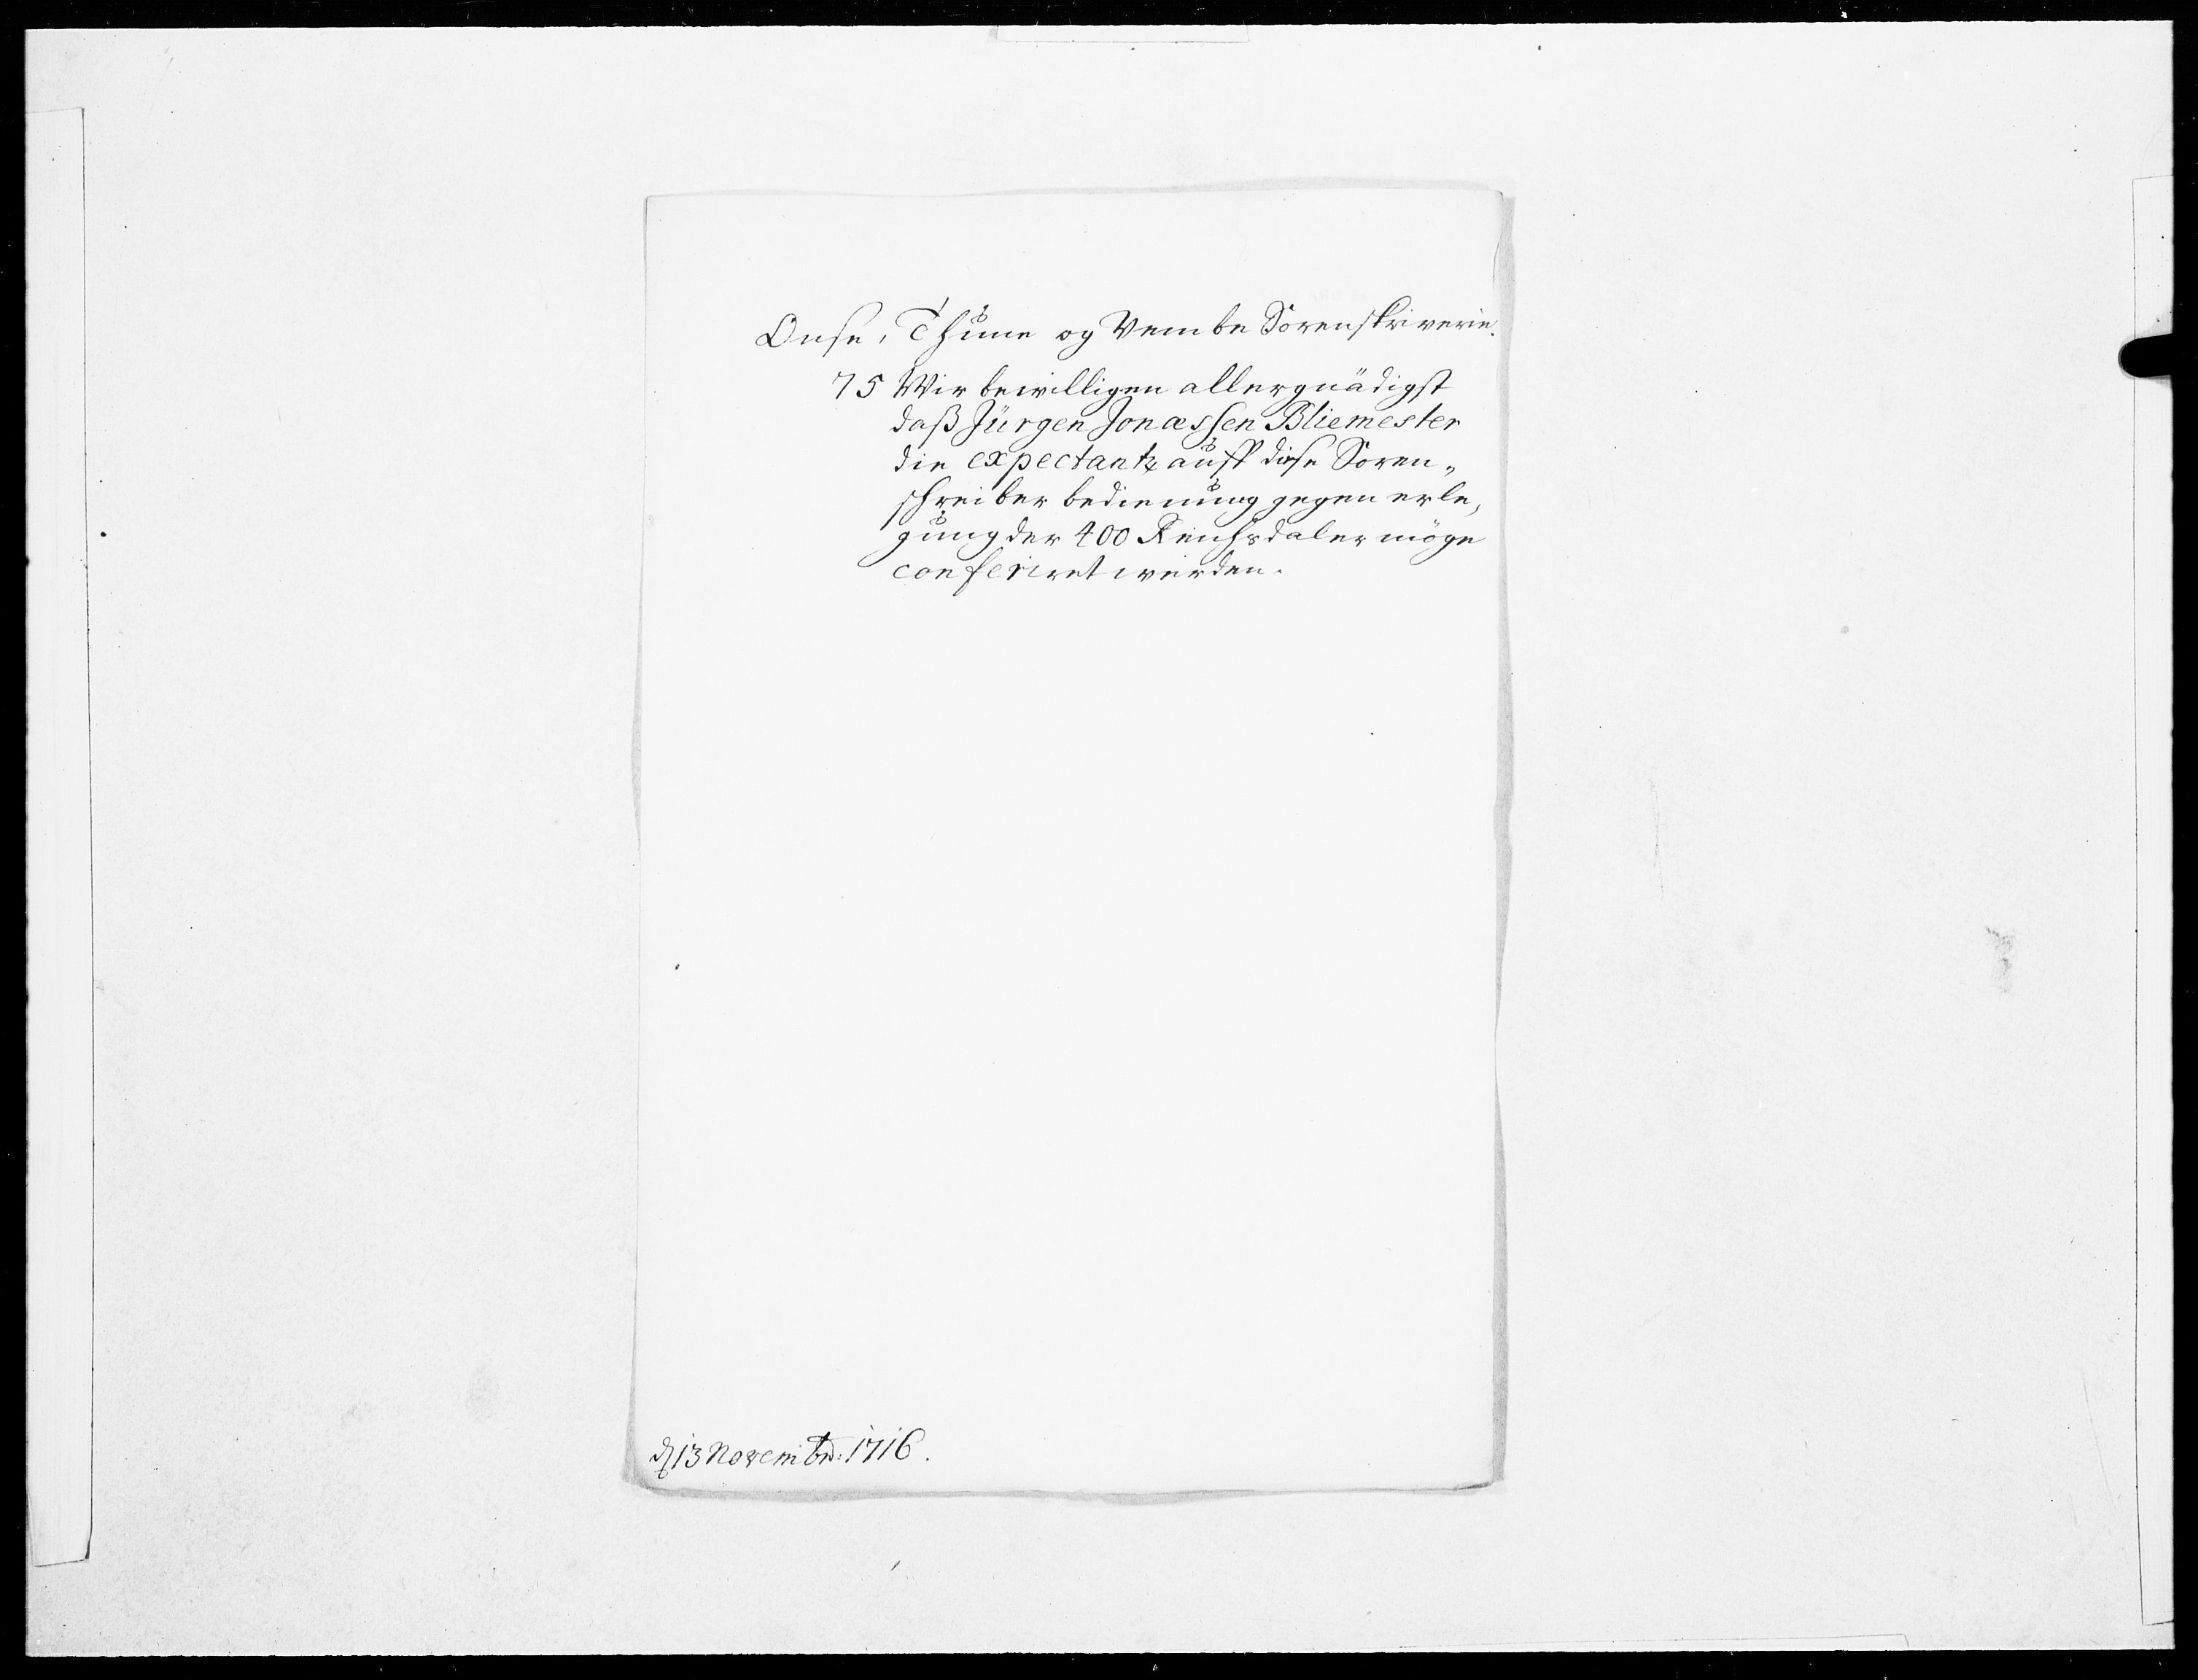 Onse, Thune og Vembe Sorenskriverie.
75 Wir bewilligen allergnädigst
daß Jürgen Jonassen Bliemester
die expectantz auff diese Soren„
schreiber bedienung gegen erle„
gung der 400 Reichsdaler möge
conferiret werden.
d 13 Novembr: 1716.